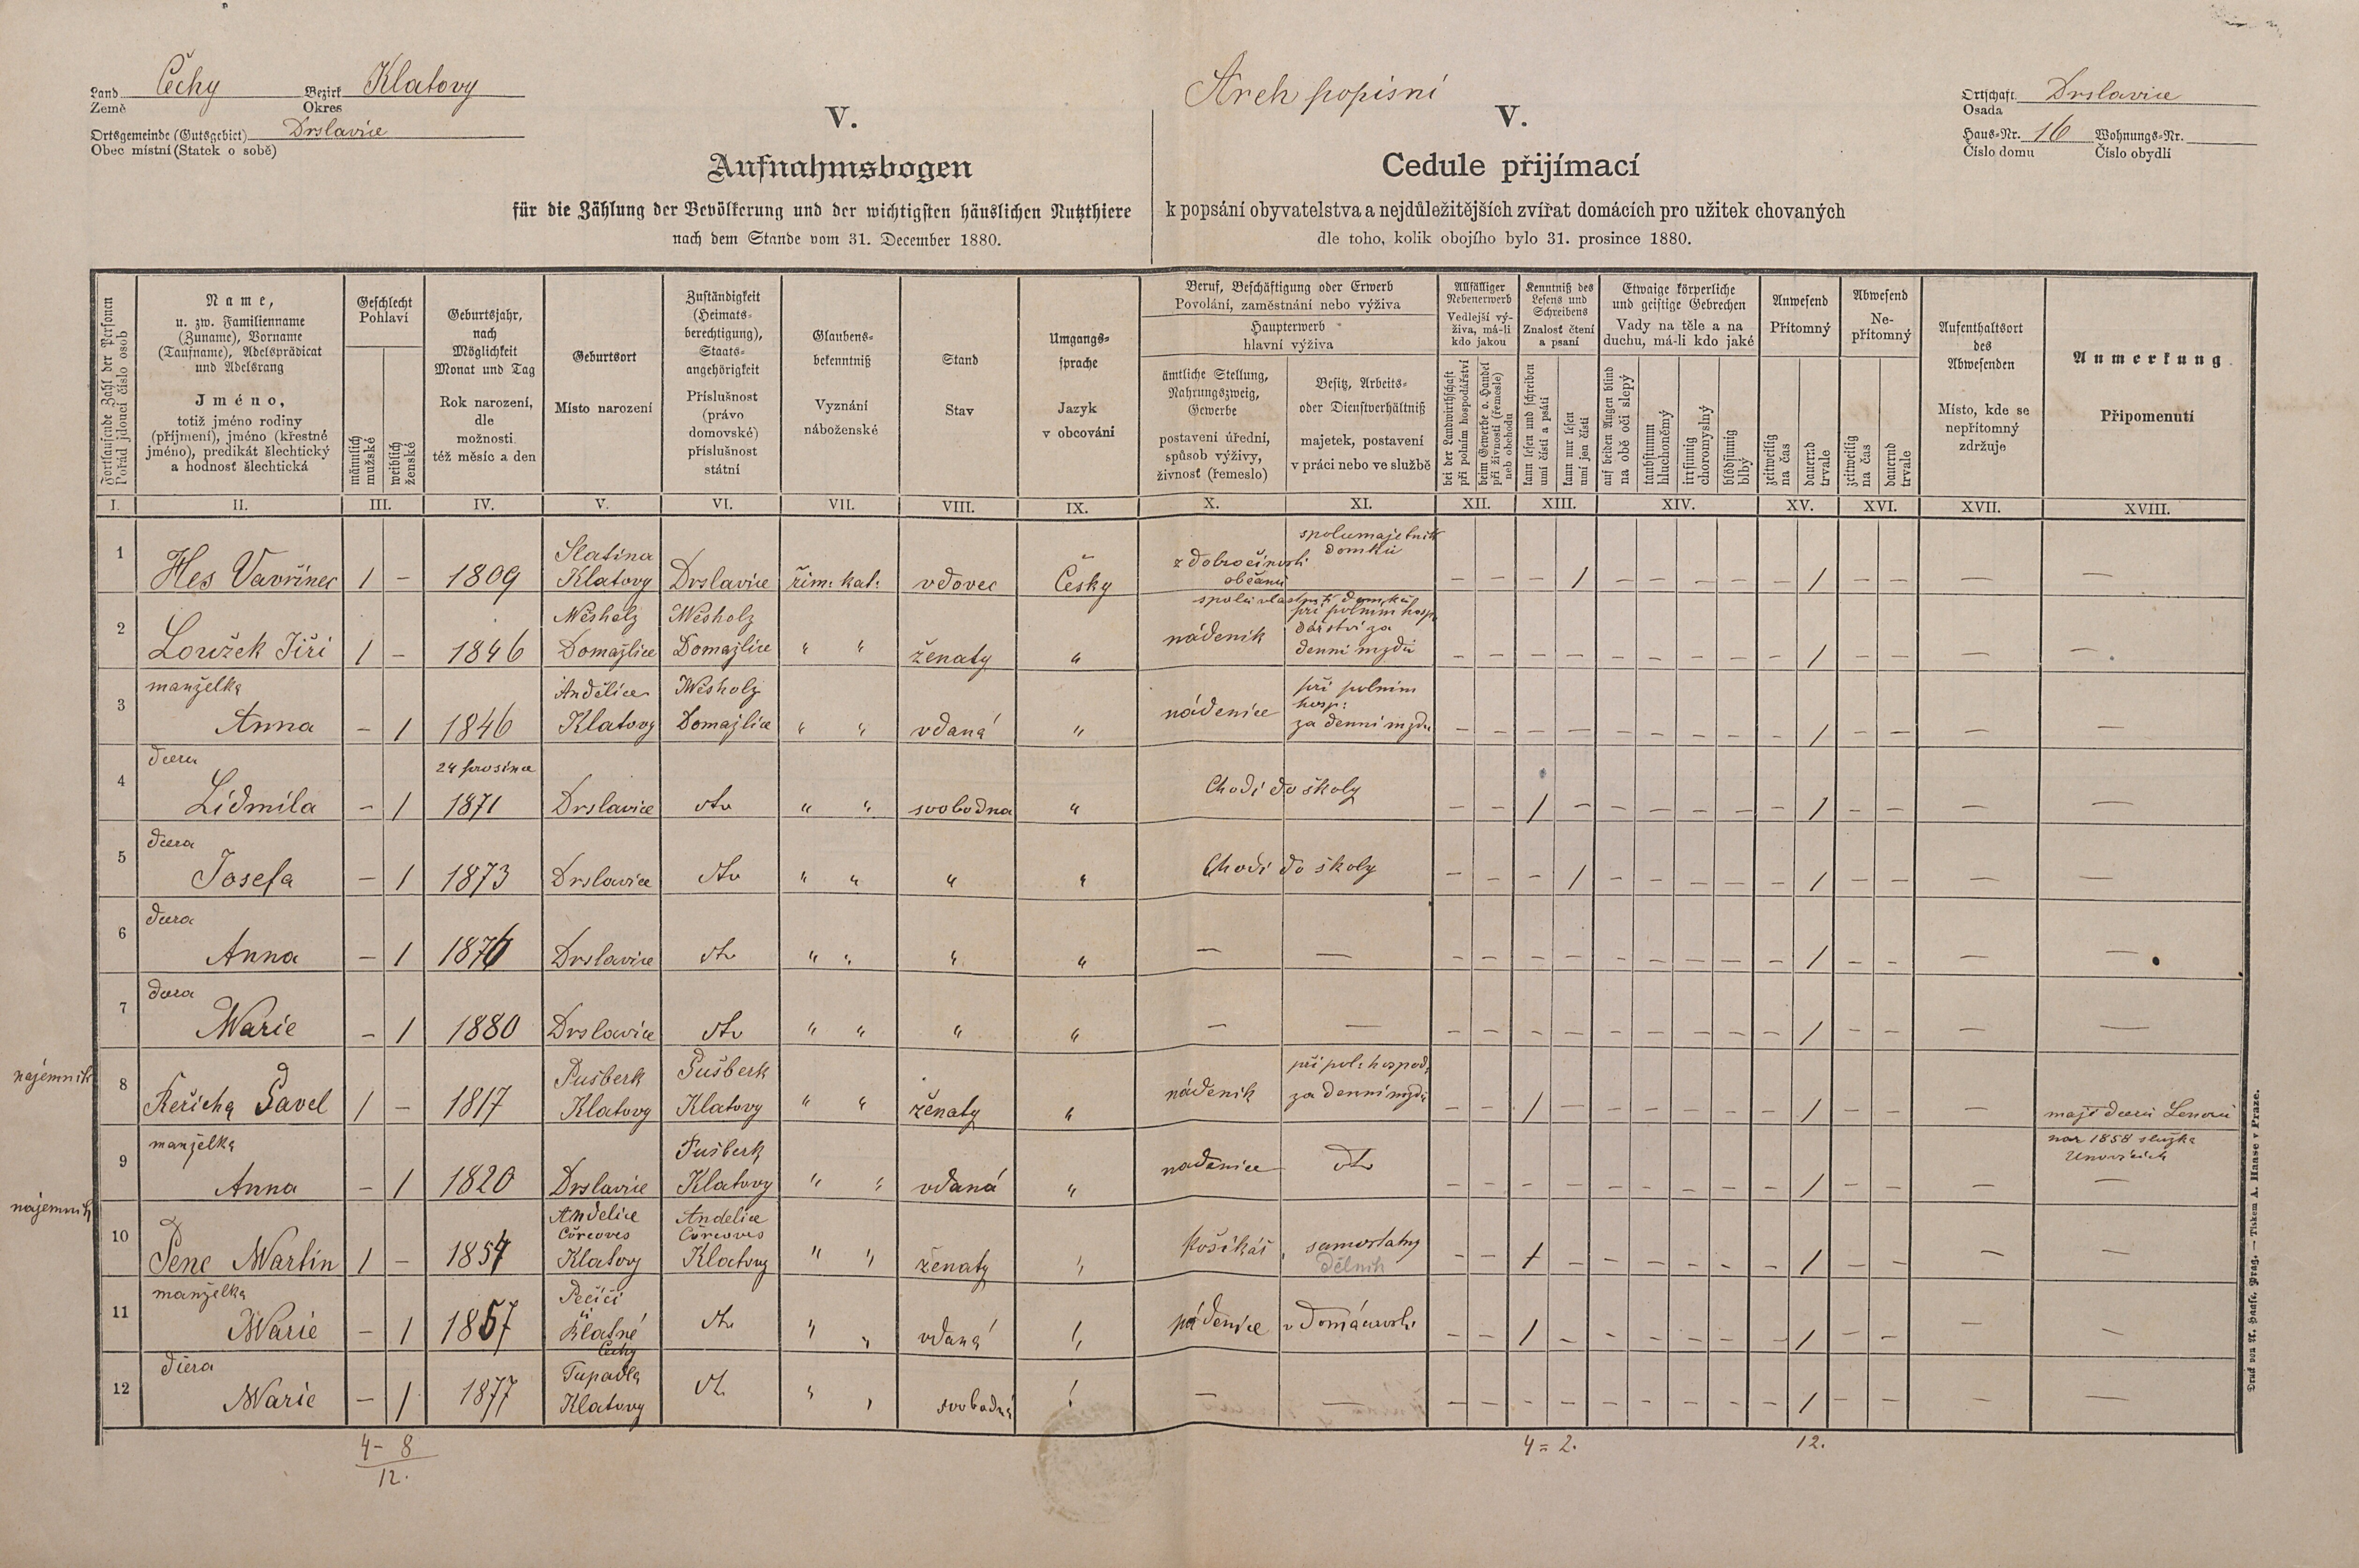 Land Čechy Bezirk Klatovy
Země Okres
Ortsgemeinde (Gutsgebiet) Drslavice
Obec místní (Statek o sobě)
V.
Aufnahmsbogen
für die Zählung der Bevölkerung und der wichtigsten häuslichen Nutzthiere
nach dem Stande vom 31. December 1880.
Arch popisní
V.
Cedule přijímací
k popsání obyvatelstva a nejdůležitějších zvířat domácích pro užitek chovaných
dle toho, kolik obojího bylo 31. prosince 1880.
Ortschaft Drslavice
Osada
Haus-Nr. 16 Wohnungs-Nr.
Číslo domu Číslo obydlí
Fortlaufende Zahl der Personen
Pořád jdoucí číslo osob
Name,
u. zw. Familienname
(Zuname), Vorname
(Taufname), Adelsprädicat
und Adelsrang
Jméno,
totiž jméno rodiny
(příjmení), jméno (křestné
jméno), predikát šlechtický
a hodnosť šlechtická
Geschlecht
Pohlaví
männlich
mužské
weiblich
ženské
Geburtsjahr,
nach
Möglichkeit
Monat und Tag
Rok narození,
dle
možnosti
též měsíc a den
Geburtsort
Místo narození
Zuständigkeit
(Heimats-
berechtigung),
Staats-
angehörigkeit
Příslušnost
(právo
domovské)
příslušnost
státní
Glaubens-
bekenntniß
Vyznání
náboženské
Stand
Stav
Umgangs-
sprache
Jazyk
v obcování
Beruf, Beschäftigung oder Erwerb
Povolání, zaměstnání nebo výživa
Haupterwerb
hlavní výživa
ämtliche Stellung,
Nahrungszweig,
Gewerbe
postavení úřední,
spůsob výživy,
živnosť (řemeslo)
Besitz, Arbeits-
oder Dienstverhältniß
majetek, postavení
v práci nebo ve službě
Allfälliger
Nebenerwerb
Vedlejší vý-
živa, má-li
kdo jakou
bei der Landwirthschaft
při polním hospodářství
beim Gewerbe o. Handel
při živnosti (řemesle)
neb obchodu
Kenntniß des
Lesens und
Schreibens
Znalosť čtení
a psaní
kann lesen und schreiben
umí čísti a psáti
kann nur lesen
umí jen čísti
Etwaige körperliche
und geistige Gebrechen
Vady na těle a na
duchu, má-li kdo jaké
auf beiden Augen blind
na obě oči slepý
taubstumm
hluchoněmý
irrsinnig
choromyslný
blödsinnig
blbý
Anwesend
Přítomný
zeitweilig
na čas
dauernd
trvale
Abwesend
Ne-
přítomný
zeitweilig
na čas
dauernd
trvale
Aufenthaltsort
des
Abwesenden
Místo, kde se
nepřítomný
zdržuje
Anmerkung
Připomenutí
I. II. III. IV. V. VI. VII. VIII. IX. X. XI. XII. XIII. XIV. XV. XVI. XVII. XVIII.
Slatina spolumajetník
domku
1 Hes Vavřinec 1 – 1809 Klatovy Drslavice řím: kat: vdovec Česky z dobročinosti
občanů – – – 1 – – – – – 1 – – – –
Wesholz Wesholz spolu vlastník domku
při polním hosp.
dářství za
2 Loužek Jiří 1 – 1846 Domažlice Domažlice " " ženatý " nádeník denní mzdu – – – – – – – – – 1 – – – –
manželka Andělice Wesholz při polním
hosp:
3 Anna – 1 1846 Klatovy Domažlice " " vdaná " nádenice za denní mzdu – – – – – – – – – 1 – – – –
dcera 24 prosince
4 Lidmila – 1 1871 Drslavice dto " " svobodna " Chodí do školy – – 1 – – – – – – 1 – – – –
dcera
5 Josefa – 1 1873 Drslavice dto " " " " Chodí do školy – – – 1 – – – – – 1 – – – –
dcera
6 Anna – 1 1876 Drslavice dto " " " " – – – – – – – – – – – 1 – – – –
dcera
7 Marie – 1 1880 Drslavice dto " " " " – – – – – – – – – – – 1 – – – –
nájemník Pušberk Pušberk při pol: hospod.
8 Řeřicha Pavel 1 – 1817 Klatovy Klatovy " " ženatý " nádeník za denní mzdu – – 1 – – – – – – 1 – – – mají dceru
manželka Pušberk nar 1858 služka
9 Anna – 1 1820 Drslavice Klatovy " " vdaná " nadenice dto – – – – – – – – – 1 – – – –
nájemník Andelice Andelice
10 Pene Martin 1 – 1854 Klatovy Klatovy " " ženatý " Košikář samostatný
dělník – – 1 – – – – – – 1 – – – –
manželka
11 Marie – 1 1857 Blatné
Čechy dto " " vdaná " nádenice v domácnosti – – 1 – – – – – – 1 – – – –
dcera Tupadla
12 Marie – 1 1877 Klatovy dto " " svobodná " – – – – – – – – – – – 1 – – – –
4 – 8
12.
4 = 2.
12.
Druck von A. Haase, Prag. — Tiskem A. Haase v Praze.